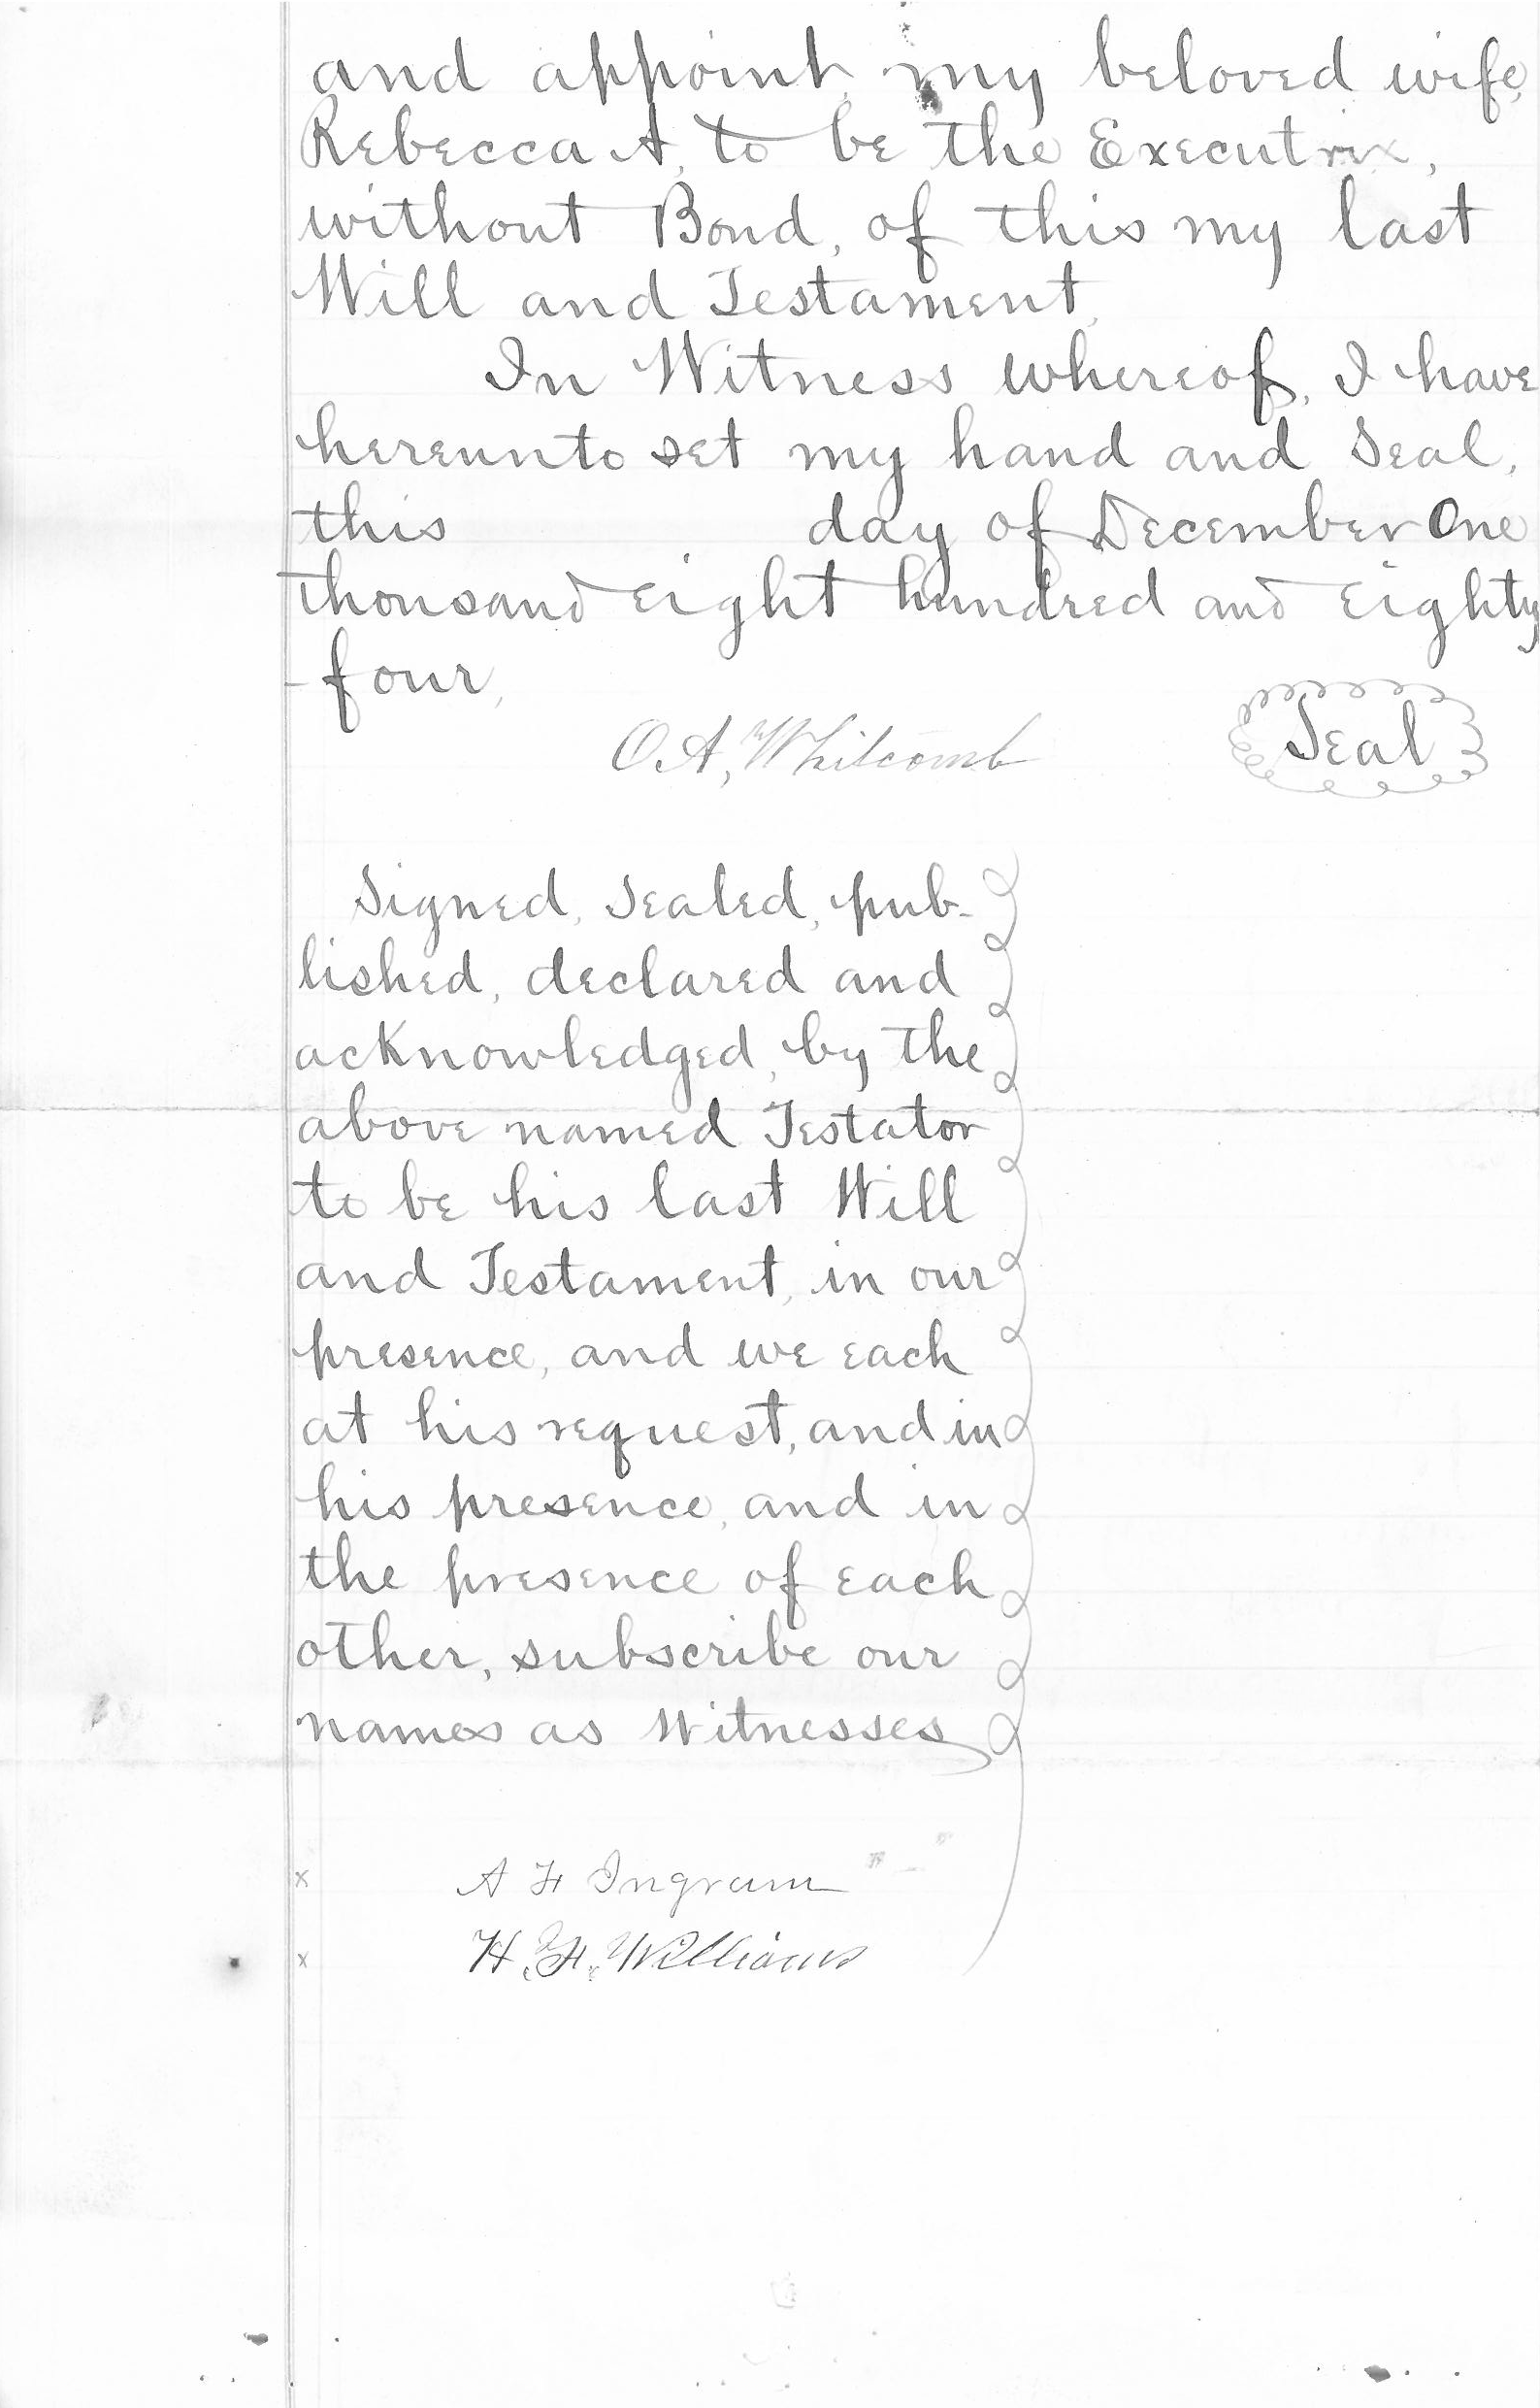 and appoint my beloved wife,
Rebecca A, to be the Executrix,
without Bond, of this my last
Will and Testament,
In Witness whereof, I have
hereunto set my hand and Seal,
this day of December One
thousand eight hundred and eighty
-four,
O. A, Whitcomb Seal
Signed, Sealed, pub-
lished, declared and
acknowledged, by the
above named Testator
to be his last Will
and Testament, in our
presence, and we each
at his request, and in
his presence, and in
the presence of each
other, subscribe our
names as Witnesses
x A F Ingram " - "
x H. F. Williams